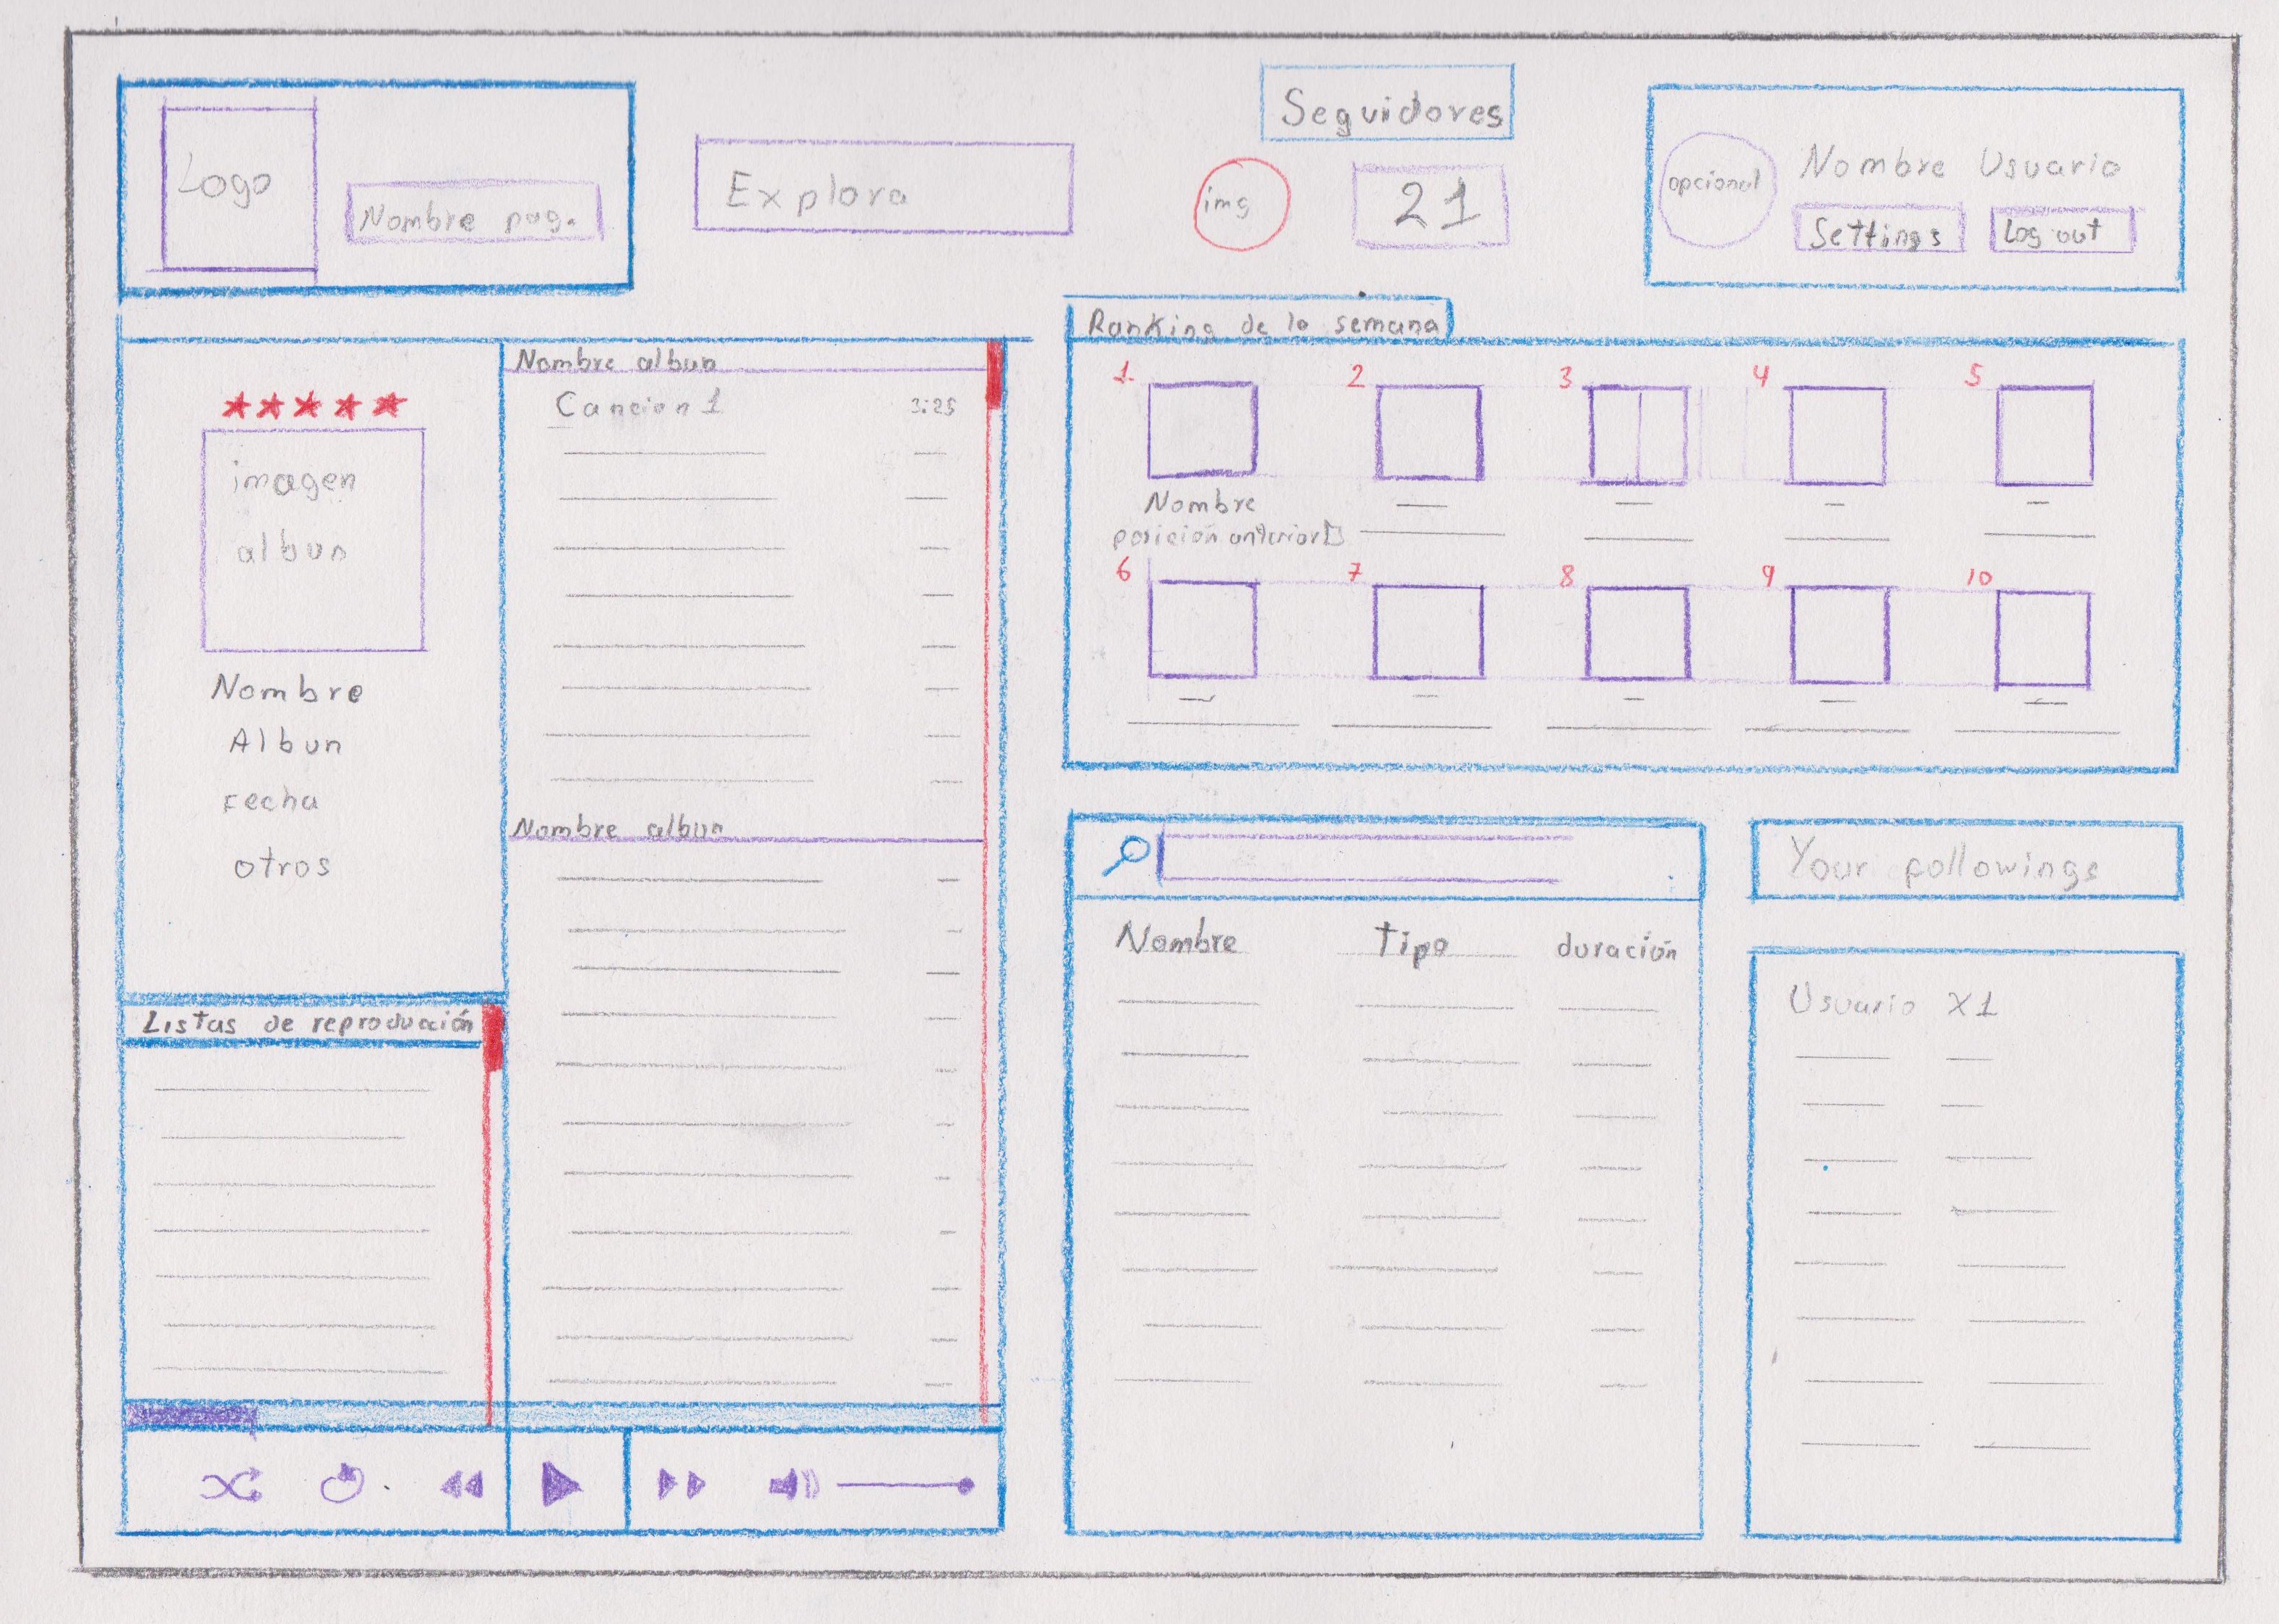 Logo
Nombre pag.
Explora
Seguidores
img
21
opcional
Nombre Usuario
Settings
Log out
imagen
albun
Nombre
Albun
Fecha
otros
Nombre albun
Cancion 1 3:25
Nombre albun
Listas de reproducción
Ranking de la semana
1 2 3 4 5
Nombre
posición anterior
6 7 8 9 10
Nombre Tipo duración
Your followings
Usuario X1